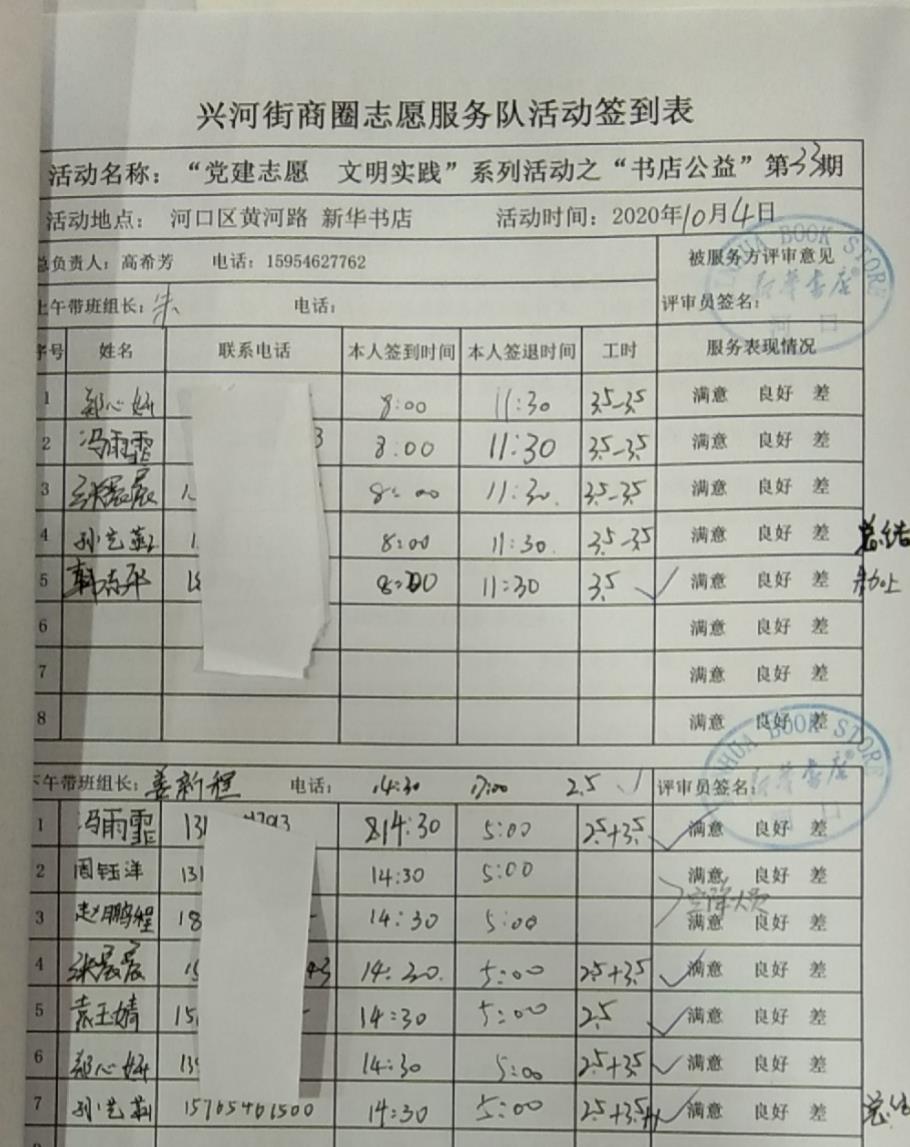 兴河街商圈志愿服务队活动签到表
活动名称：“党建志愿 文明实践”系列活动之“书店公益”第33期
活动地点： 河口区黄河路 新华书店 活动时间：2020年10月4日
总负责人：高希芳 电话：15954627762 被服务方评审意见
上午带班组长：朱 电话： 评审员签名：
序号 姓名 联系电话 本人签到时间 本人签退时间 工时 服务表现情况
1 郑心妍 8:00 11:30 3.5-3.5 满意 良好 差
2 冯雨霏 3 8:00 11:30 3.5-3.5 满意 良好 差
3 张晨晨 1 8:00 11:30. 3.5-3.5 满意 良好 差
4 孙艺 8:00 11:30. 3.5-3.5 满意 良好 差 总结
5 韩 8:00 11:30 3.5 ✓ 满意 良好 差
6 满意 良好 差
7 满意 良好 差
8 满意 良好 差
XINHUA BOOK STORE
新华书店
河口
下午带班组长：姜新程 电话： 14:30 17:00 2.5 ✓ 评审员签名：
1 冯雨霏 131 4793 814:30 5:00 2.5+3.5 ✓ 满意 良好 差
2 周钰洋 131 14:30 5:00 满意 良好 差
空降人员
3 赵鹏程 18 14:30 5:00 满意 良好 差
4 张晨晨 15 3 14:30. 5:00 2.5+3.5 ✓ 满意 良好 差
5 袁玉婧 15 14:30 5:00 2.5 ✓ 满意 良好 差
6 郑心妍 13 14:30 5:00 2.5+3.5 ✓ 满意 良好 差
7 孙艺 15765461500 14:30 5:00 2.5+3.5 ✓ 满意 良好 差
XINHUA BOOK STORE
新华书店